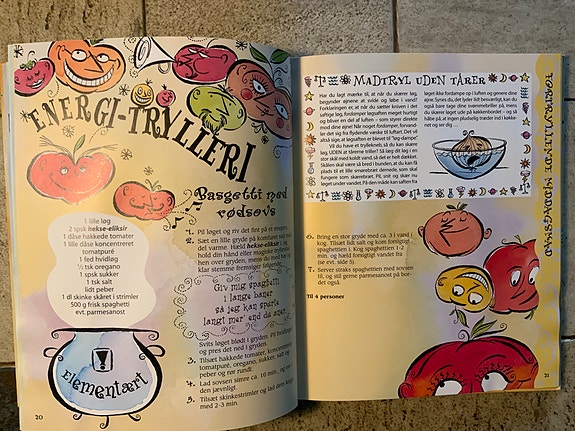 ENERGI-TRYLLERI
Basgetti med
rødsevs
1 lille løg
2 spsk hekse-eliksir
1 dåse hakkede tomater
1 lille dåse koncentreret
tomatpuré
1 fed hvidløg
½ tsk oregano
1 spsk sukker
1 tsk salt
lidt peber
1 dl skinke skåret i strimler
500 g frisk spaghetti
evt. parmesanost
Elementært
1. Pil løget og riv det fint på et rivejern.
2. Sæt en lille gryde på komfuret med
del varme. Hæld hekse-eliksir i
hold din hånd eller magiske tryllestav
hen over gryden, mens du med høj og
klar stemme fremsiger følgende:
Giv mig spaghetti
i lange baner
så jeg kan spurte
langt mer' end du aner
Svits løget blødt i gryden. Pil hvidløget
og pres det ned i gryden.
3. Tilsæt hakkede tomater, koncentreret
tomatpuré, oregano, sukker, salt og
peber og rør rundt.
4. Lad sovsen simre ca. 10 min., og rør i
den jævnligt.
5. Tilsæt skinkestrimler og lad dem koge
med 2-3 min.
20
MADTRYL UDEN TÅRER
Har du lagt mærke til, at når du skærer løg,
begynder øjnene at svide og løbe i vand?
Forklaringen er, at når du sætter kniven i det
saftige løg, fordamper løgsaften meget hurtigt
og bliver en del af luften - som styrer direkte
mod dine øjne! Når noget fordamper, forvandler
det sig fra flydende væske til luftart. Det vil
altså sige at løgsaften er blevet til "løg-dampe".
Vil du have et tryllekneb, så du kan skære
løg, UDEN at tårerne triller? Så læg dit løg i en
stor skål med koldt vand, så det er helt dækket.
Skålen skal være så bred i bunden, at du kan få
plads til et lille smørebræt dernede, som skal
fungere som skærebræt. Pil, snit og skær nu
løget under vandet. På den måde kan saften fra
løget ikke fordampe op i luften og genere dine
øjne. Synes du, det lyder lidt besværligt, kan du
også bare tage dine svømmebriller på, mens
du skærer løget ude på køkkenbordet - og så
håbe på, at der ikke pludselig træder ind i køkken-
et og ser dig ...
FORTRYLLENDE MIDDAGSMAD
6. Bring en stor gryde med ca. 3 l vand i
kog. Tilsæt lidt salt og kom forsigtigt
spaghettien i. Kog spaghettien 1-2
min. og hæld forsigtigt vandet fra
(se evt. side 5).
7. Server straks spaghettien med sovsen
til, og stil gerne parmesanost på bor-
det også.
Til 4 personer
21